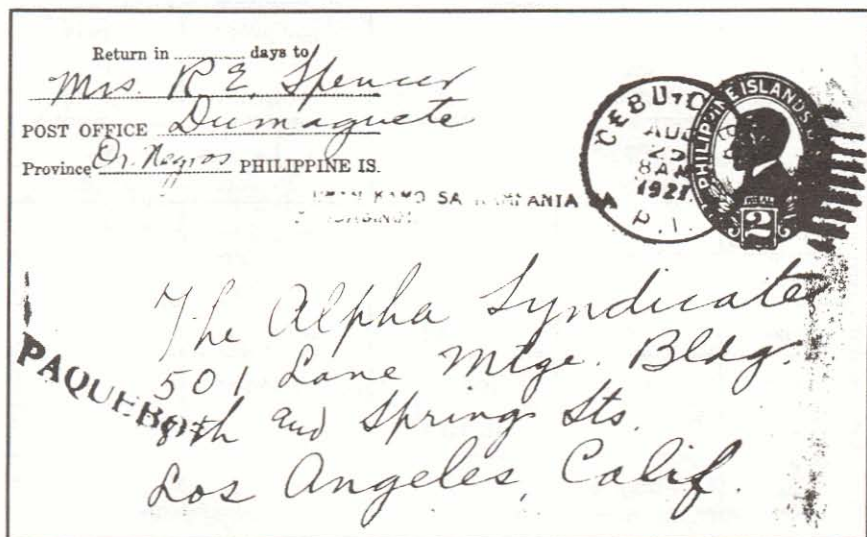 Return in ........ days to
Mrs. R E, Spencer
POST OFFICE Dumaguete
Province Or. Negros PHILIPPINE IS.
KAMO SA KAMPANIA SA
CEBU, C
AUG
25
8 AM
1921
P. I.
PHILIPPINE ISLANDS
2
PAQUEBOT
The Alpha Syndicate
501 Lane Mtge. Bldg.
8th and Spring Sts.
Los Angeles, Calif.